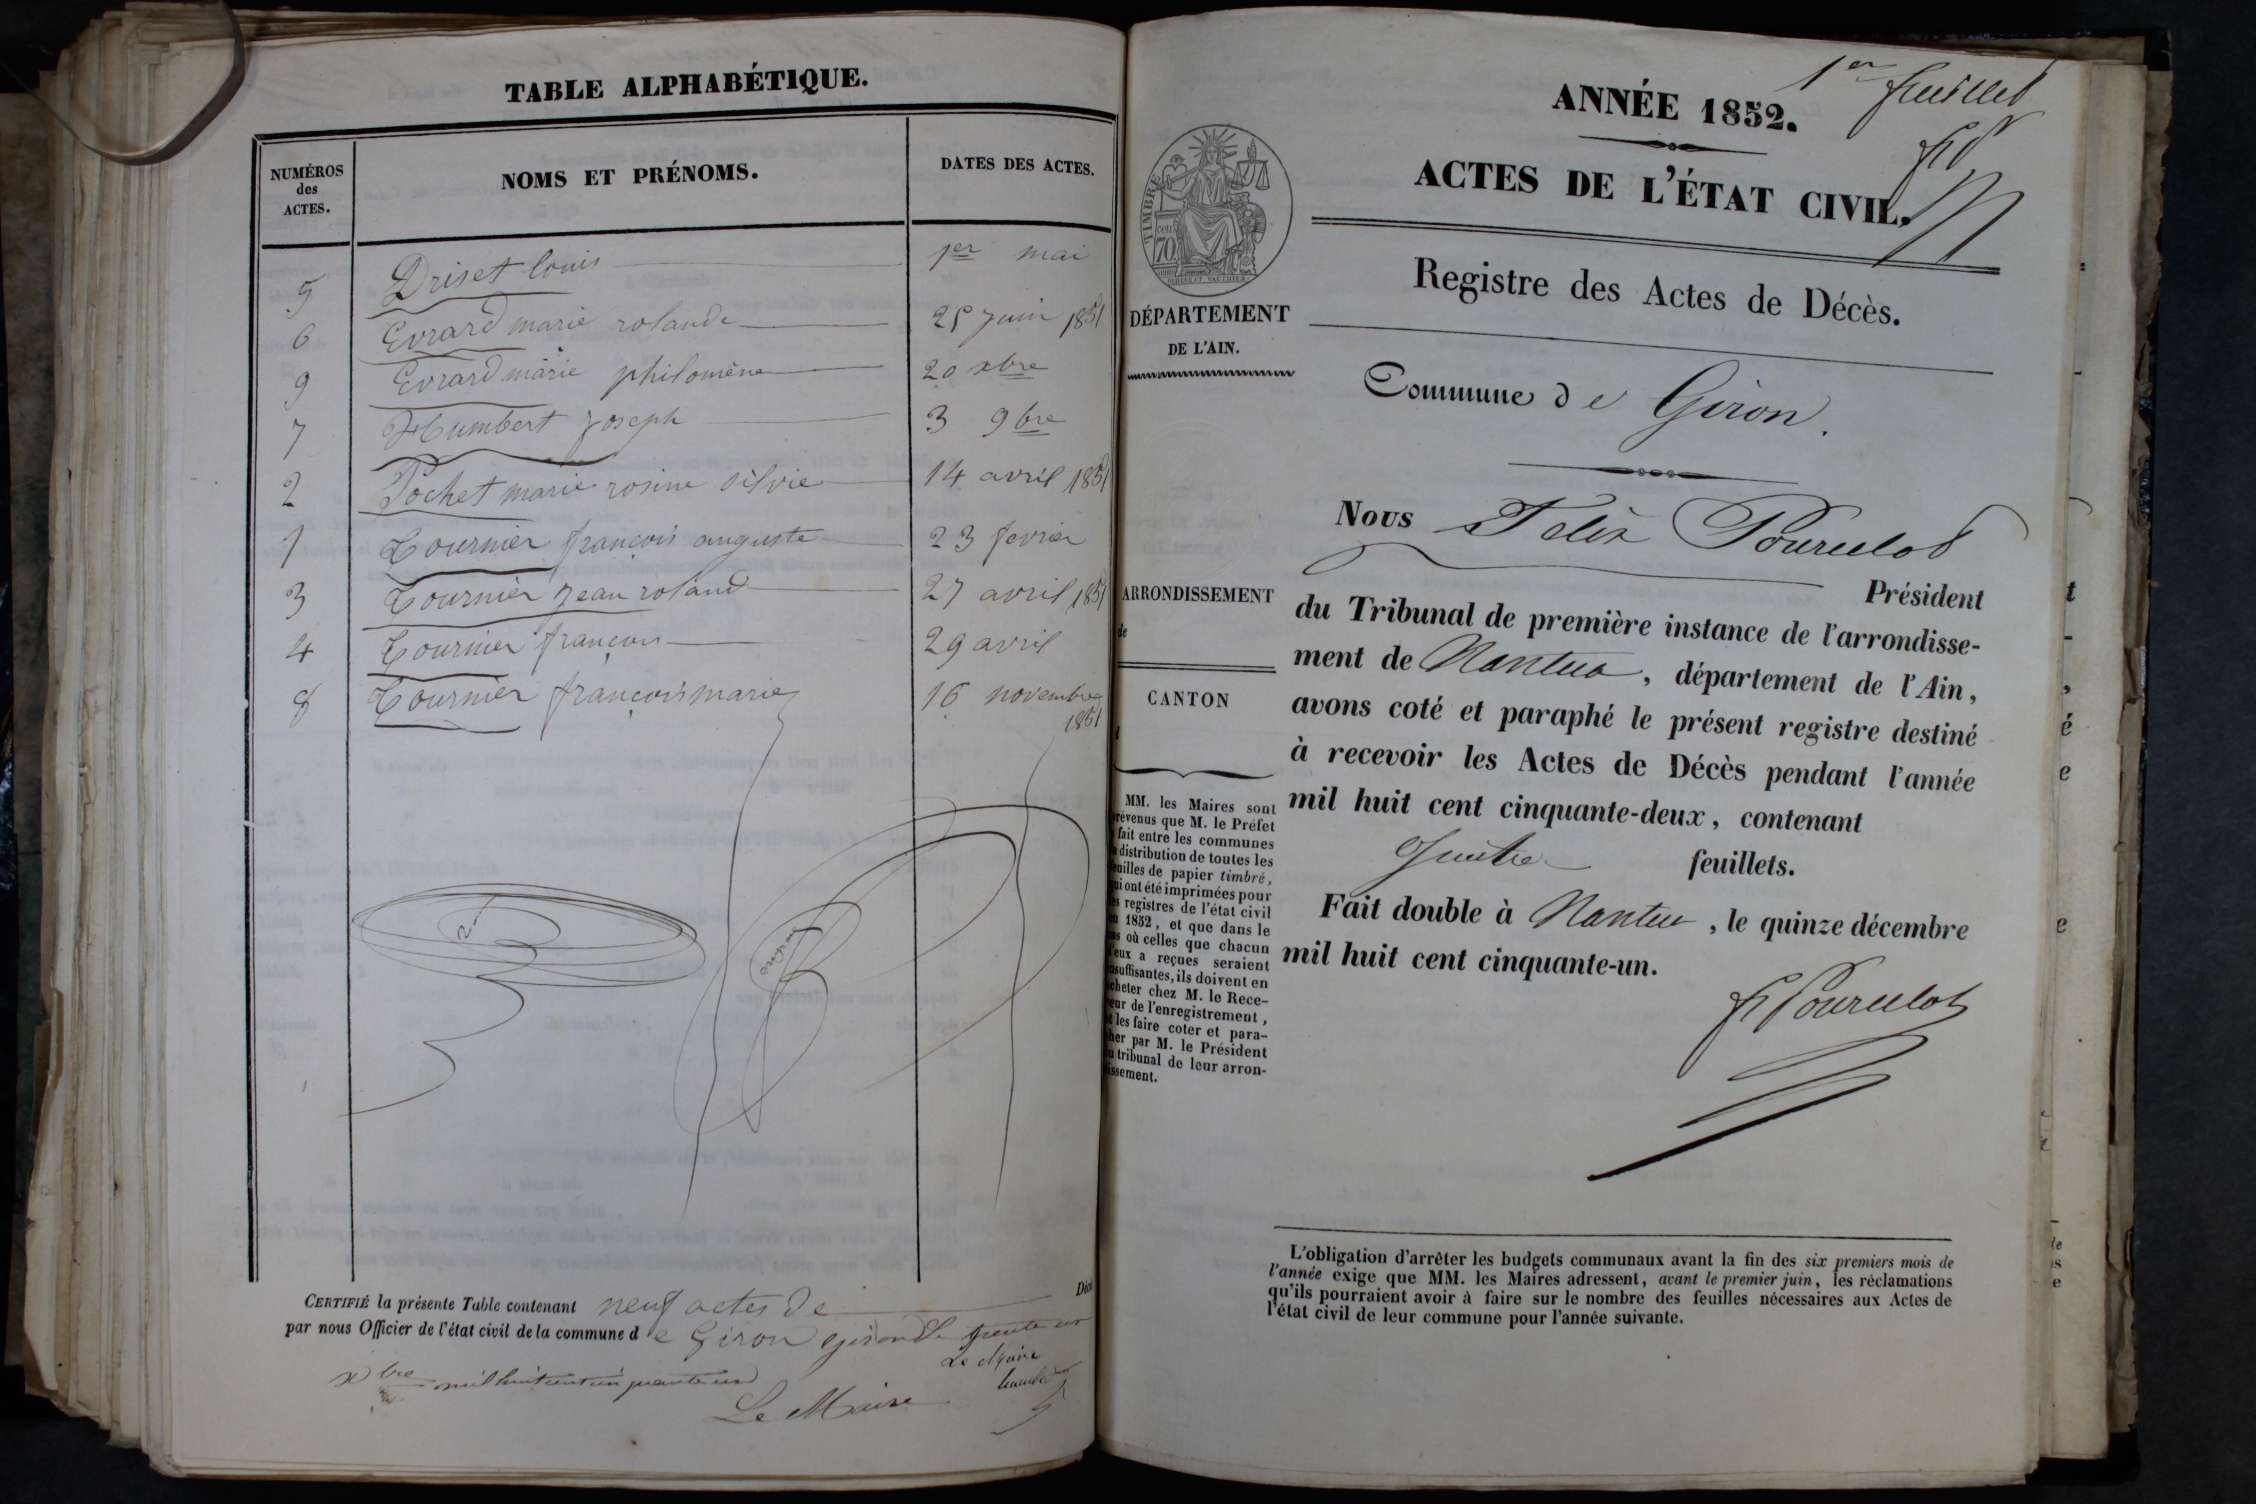 TABLE ALPHABÉTIQUE.
NUMÉROS des ACTES. NOMS ET PRÉNOMS. DATES DES ACTES.
5 Driset louis 1er mai
6 Evrard marie rolande 25 juin 1851
9 Evrard marie philomène 20 xbre
7 Humbert joseph 3 9bre
2 Pochet marie rosine silvie 14 avril 1851
1 Tournier françois auguste 23 fevrier
3 Tournier jean roland 27 avril 1851
4 Tournier françois 29 avril
8 Tournier françois marie 16 novembre
1851
CERTIFIÉ la présente Table contenant neuf actes de Décè
par nous Officier de l'état civil de la commune d e Giron trente un
xbre mil huit cent cinquante un
Le Maire
Le Maire
1er feuillet
ANNÉE 1852.
ACTES DE L'ÉTAT CIVIL.
Registre des Actes de Décès.
TIMBRE
70
DÉPARTEMENT
DE L'AIN.
Commune d e Giron.
Nous Félix Pourcelot
Président
du Tribunal de première instance de l'arrondisse-
ment de Nantua, département de l'Ain,
avons coté et paraphé le présent registre destiné
à recevoir les Actes de Décès pendant l'année
mil huit cent cinquante-deux, contenant
Quatre feuillets.
Fait double à Nantua, le quinze décembre
mil huit cent cinquante-un.
f Pourcelot
ARRONDISSEMENT
de
CANTON
MM. les Maires sont
prévenus que M. le Préfet
a fait entre les communes
la distribution de toutes les
feuilles de papier timbré,
qui ont été imprimées pour
les registres de l'état civil
en 1852, et que dans le
cas où celles que chacun
d'eux a reçues seraient
insuffisantes, ils doivent en
acheter chez M. le Rece-
veur de l'enregistrement,
et les faire coter et para-
pher par M. le Président
du tribunal de leur arron-
dissement.
L'obligation d'arrêter les budgets communaux avant la fin des six premiers mois de
l'année exige que MM. les Maires adressent, avant le premier juin, les réclamations
qu'ils pourraient avoir à faire sur le nombre des feuilles nécessaires aux Actes de
l'état civil de leur commune pour l'année suivante.